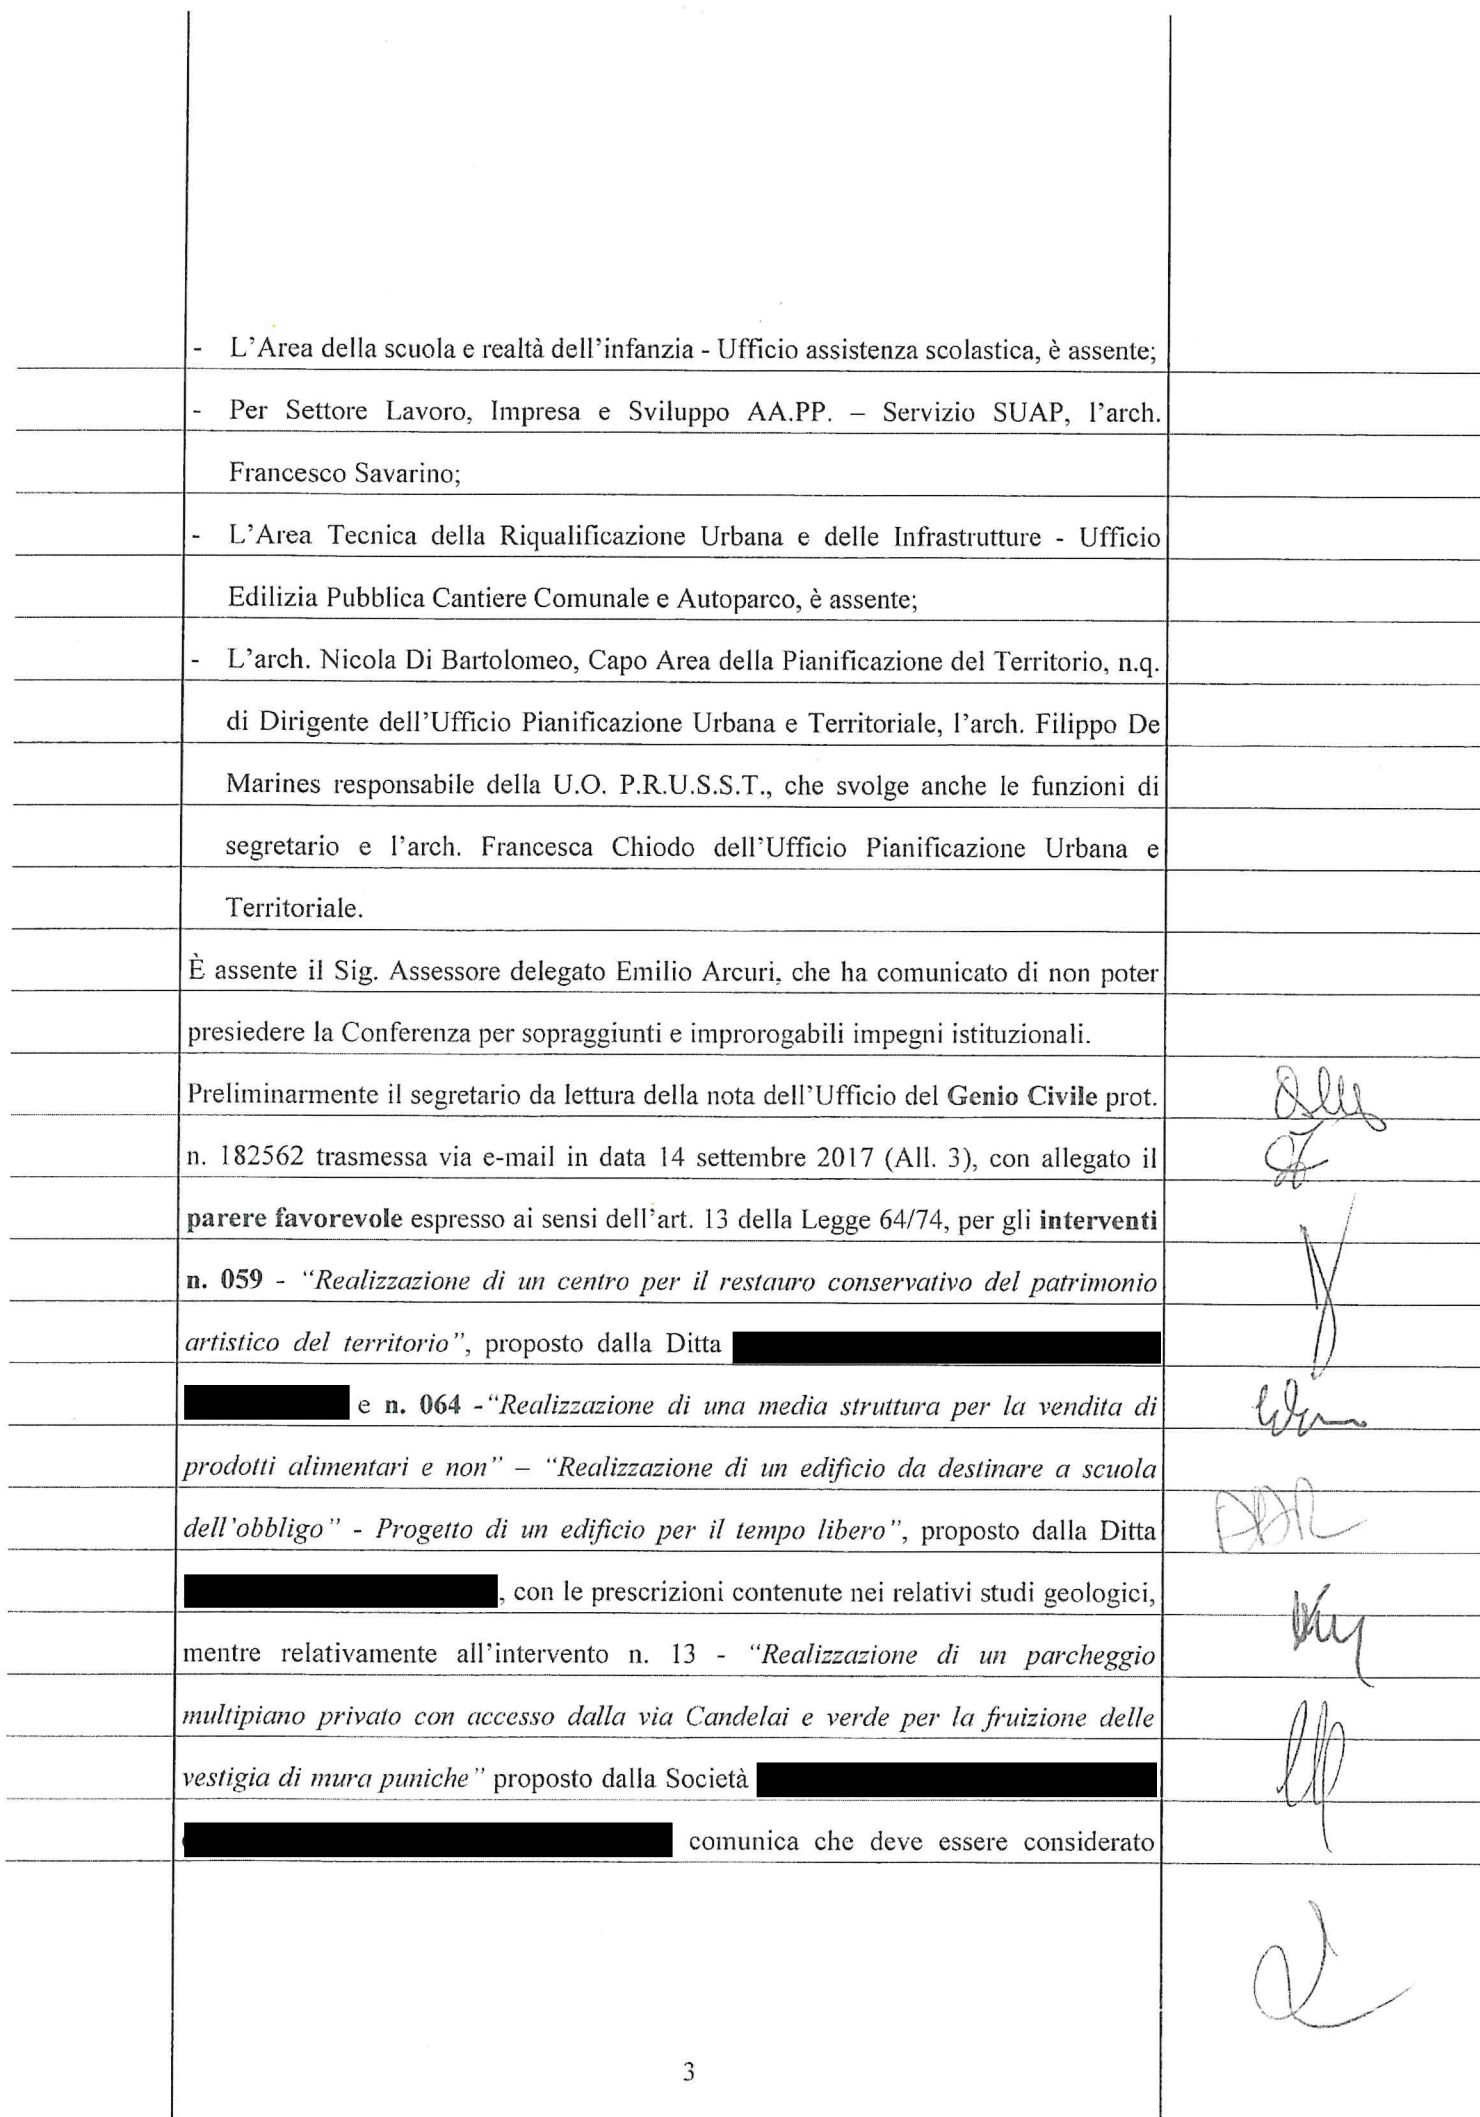 - L'Area della scuola e realtà dell'infanzia - Ufficio assistenza scolastica, è assente;
- Per Settore Lavoro, Impresa e Sviluppo AA.PP. – Servizio SUAP, l'arch.
Francesco Savarino;
- L'Area Tecnica della Riqualificazione Urbana e delle Infrastrutture - Ufficio
Edilizia Pubblica Cantiere Comunale e Autoparco, è assente;
- L'arch. Nicola Di Bartolomeo, Capo Area della Pianificazione del Territorio, n.q.
di Dirigente dell'Ufficio Pianificazione Urbana e Territoriale, l'arch. Filippo De
Marines responsabile della U.O. P.R.U.S.S.T., che svolge anche le funzioni di
segretario e l'arch. Francesca Chiodo dell'Ufficio Pianificazione Urbana e
Territoriale.
È assente il Sig. Assessore delegato Emilio Arcuri, che ha comunicato di non poter
presiedere la Conferenza per sopraggiunti e improrogabili impegni istituzionali.
Preliminarmente il segretario da lettura della nota dell'Ufficio del Genio Civile prot.
n. 182562 trasmessa via e-mail in data 14 settembre 2017 (All. 3), con allegato il
parere favorevole espresso ai sensi dell'art. 13 della Legge 64/74, per gli interventi
n. 059 - “Realizzazione di un centro per il restauro conservativo del patrimonio
artistico del territorio”, proposto dalla Ditta
e n. 064 -“Realizzazione di una media struttura per la vendita di
prodotti alimentari e non” – “Realizzazione di un edificio da destinare a scuola
dell'obbligo” - Progetto di un edificio per il tempo libero”, proposto dalla Ditta
, con le prescrizioni contenute nei relativi studi geologici,
mentre relativamente all'intervento n. 13 - “Realizzazione di un parcheggio
multipiano privato con accesso dalla via Candelai e verde per la fruizione delle
vestigia di mura puniche” proposto dalla Società
comunica che deve essere considerato
3